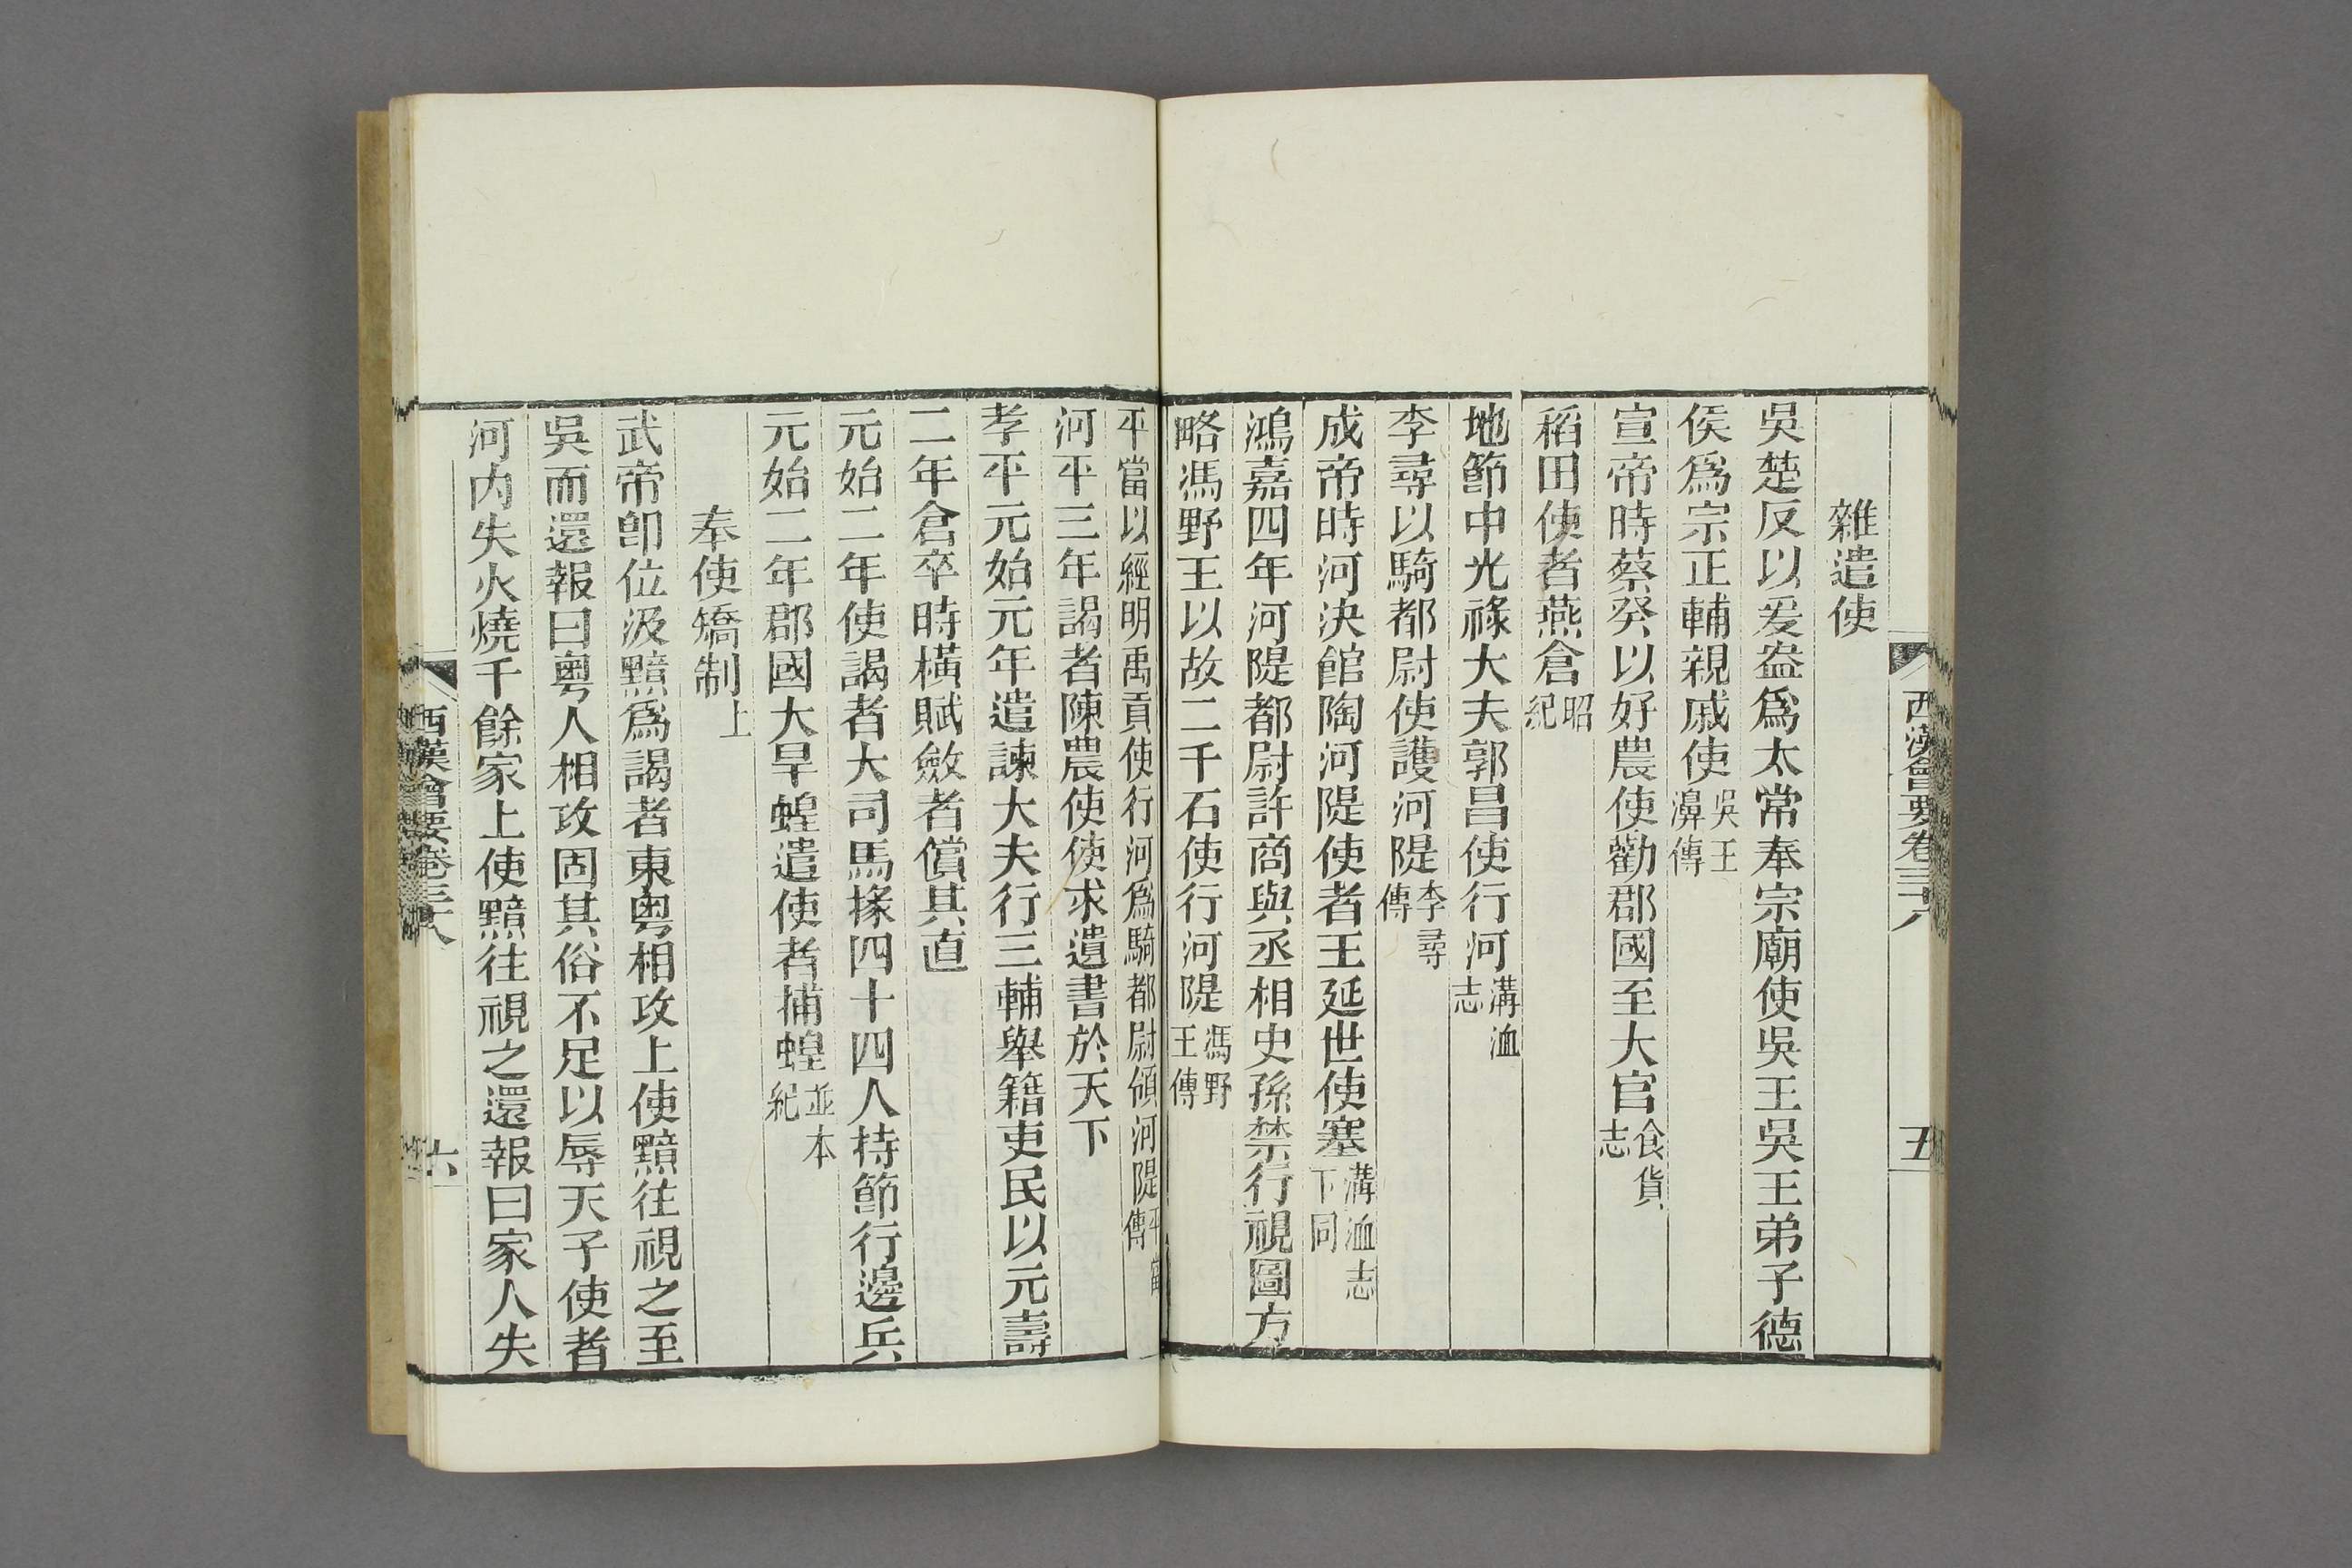 西漢會要卷三十八
五
雜遣使
吳楚反以爰盎爲太常奉宗廟使吳王吳王弟子德
侯爲宗正輔親戚使吳王濞傳
宣帝時蔡癸以好農使勸郡國至大官食貨志
稻田使者燕倉昭紀
地節中光祿大夫郭昌使行河溝洫志
李尋以騎都尉使護河隄李尋傳
成帝時河決館陶河隄使者王延世使塞溝洫志下同
鴻嘉四年河隄都尉許商與丞相史孫禁行視圖方
略馮野王以故二千石使行河隄馮野王傳
平當以經明禹貢使行河爲騎都尉領河隄平當傳
河平三年謁者陳農使使求遺書於天下
孝平元始元年遣諫大夫行三輔舉籍吏民以元壽
二年倉卒時橫賦斂者償其直
元始二年使謁者大司馬掾四十四人持節行邊兵
元始二年郡國大旱蝗遣使者捕蝗並本紀
奉使矯制上
武帝卽位汲黯爲謁者東粵相攻上使黯往視之至
吳而還報曰粵人相攻固其俗不足以辱天子使者
河內失火燒千餘家上使黯往視之還報曰家人失
西漢會要卷三十八
六